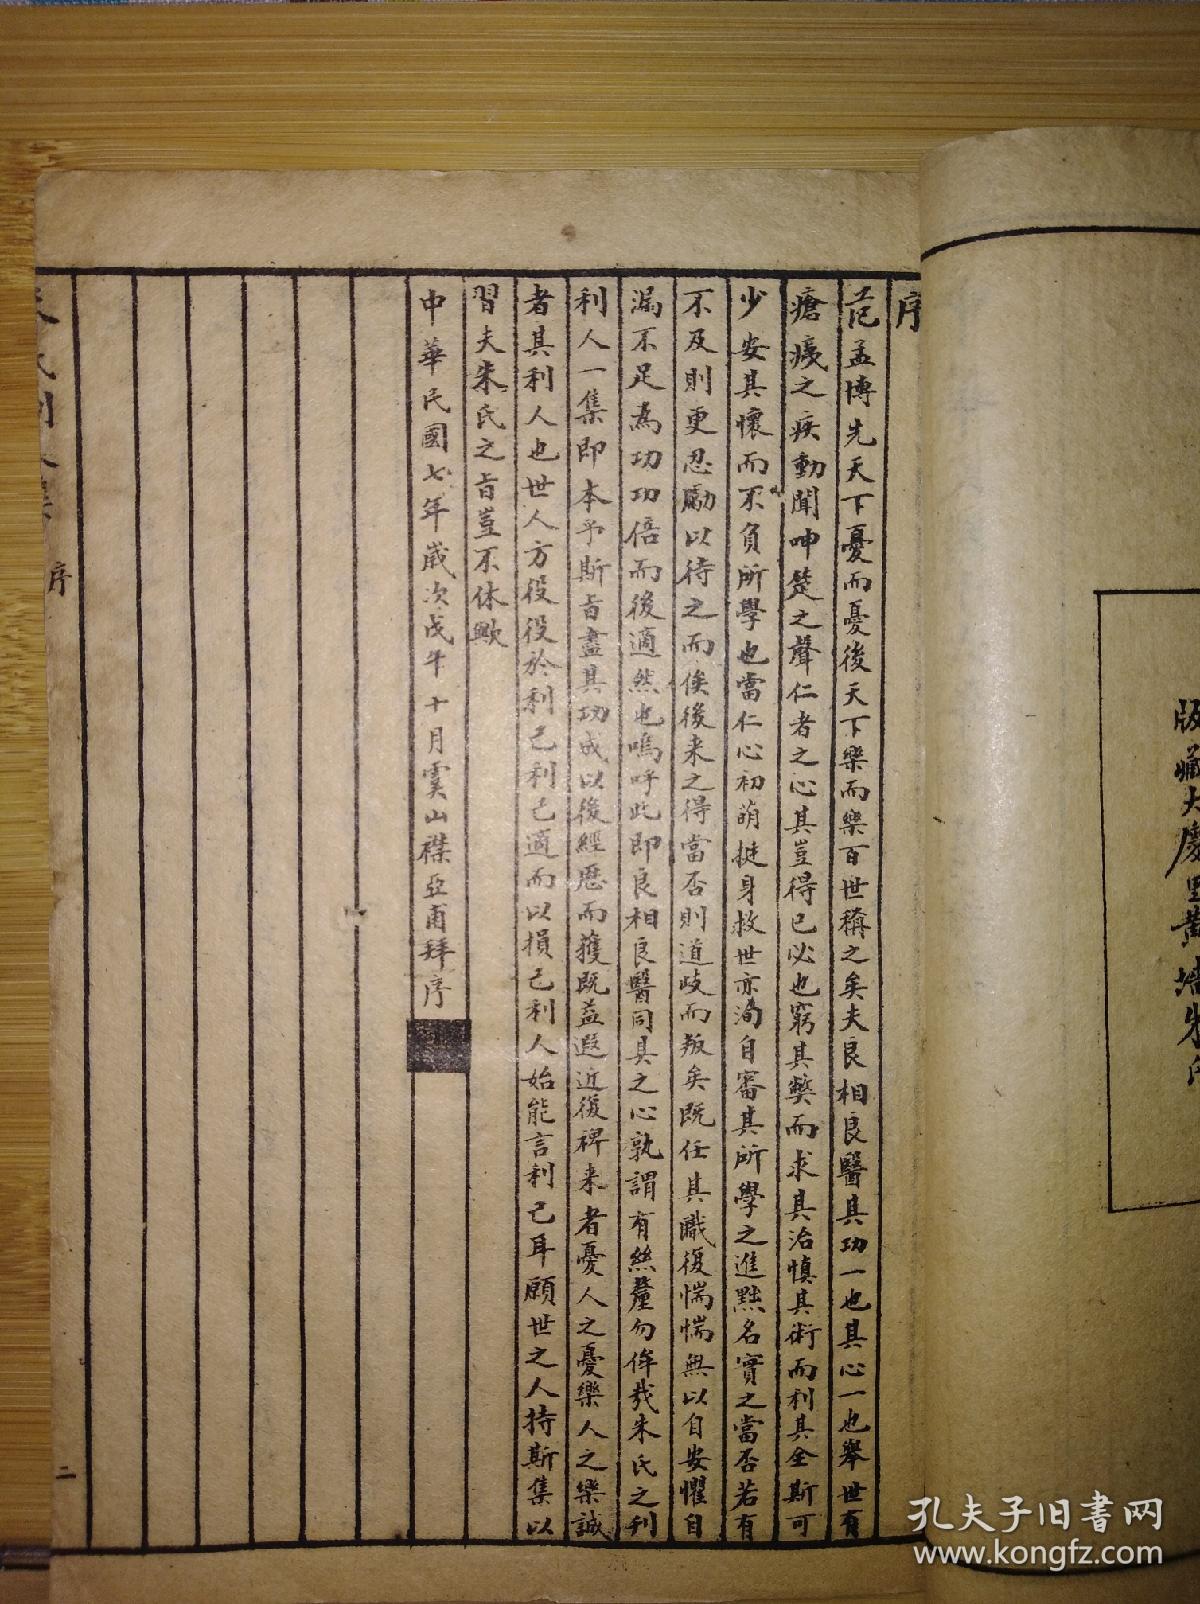 版藏大慶里黄
序
范孟博先天下憂而憂後天下樂而樂百世稱之矣夫良相良醫其功一也其心一也舉世有
瘡痍之疾動聞呻楚之聲仁者之心其豈得已必也窮其弊而求其治慎其術而利其全斯可
少安其懷而不負所學也當仁心初萌挺身救世亦洵自審其所學之進黜名實之當否若有
不及則更忍勵以待之而俟後来之得當否則道歧而叛矣既任其職復惴惴無以自安懼自
漏不足為功功倍而後適然也嗚呼此即良相良醫同具之心孰謂有絲釐勿侔哉朱氏之刋
利人一集即本乎斯旨盡其功成以後經歷而獲既益遐近復裨来者憂人之憂樂人之樂誠
者其利人也世人方役役於利己利己適而以損己利人始能言利己耳願世之人持斯集以
習夫朱氏之旨豈不休歟
中華民國七年歲次戊午十月虞山襟亞甫拜序
朱氏利人集 序 二
孔夫子旧书网
www.kongfz.com